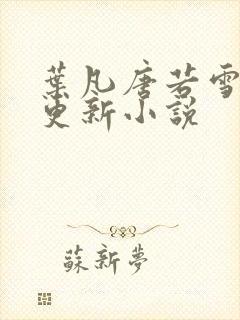 葉凡唐若雪
更新小說
蘇新夢